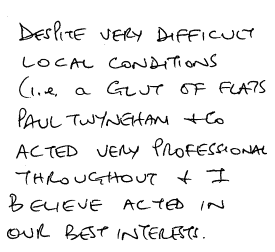 DESPITE VERY DIFFICULT
LOCAL CONDITIONS
(i.e. a GLUT OF FLATS
PAUL TWYNEHAM + Co
ACTED VERY PROFESSIONAL
THROUGHOUT + I
BELIEVE ACTED IN
OUR BEST INTERESTS.